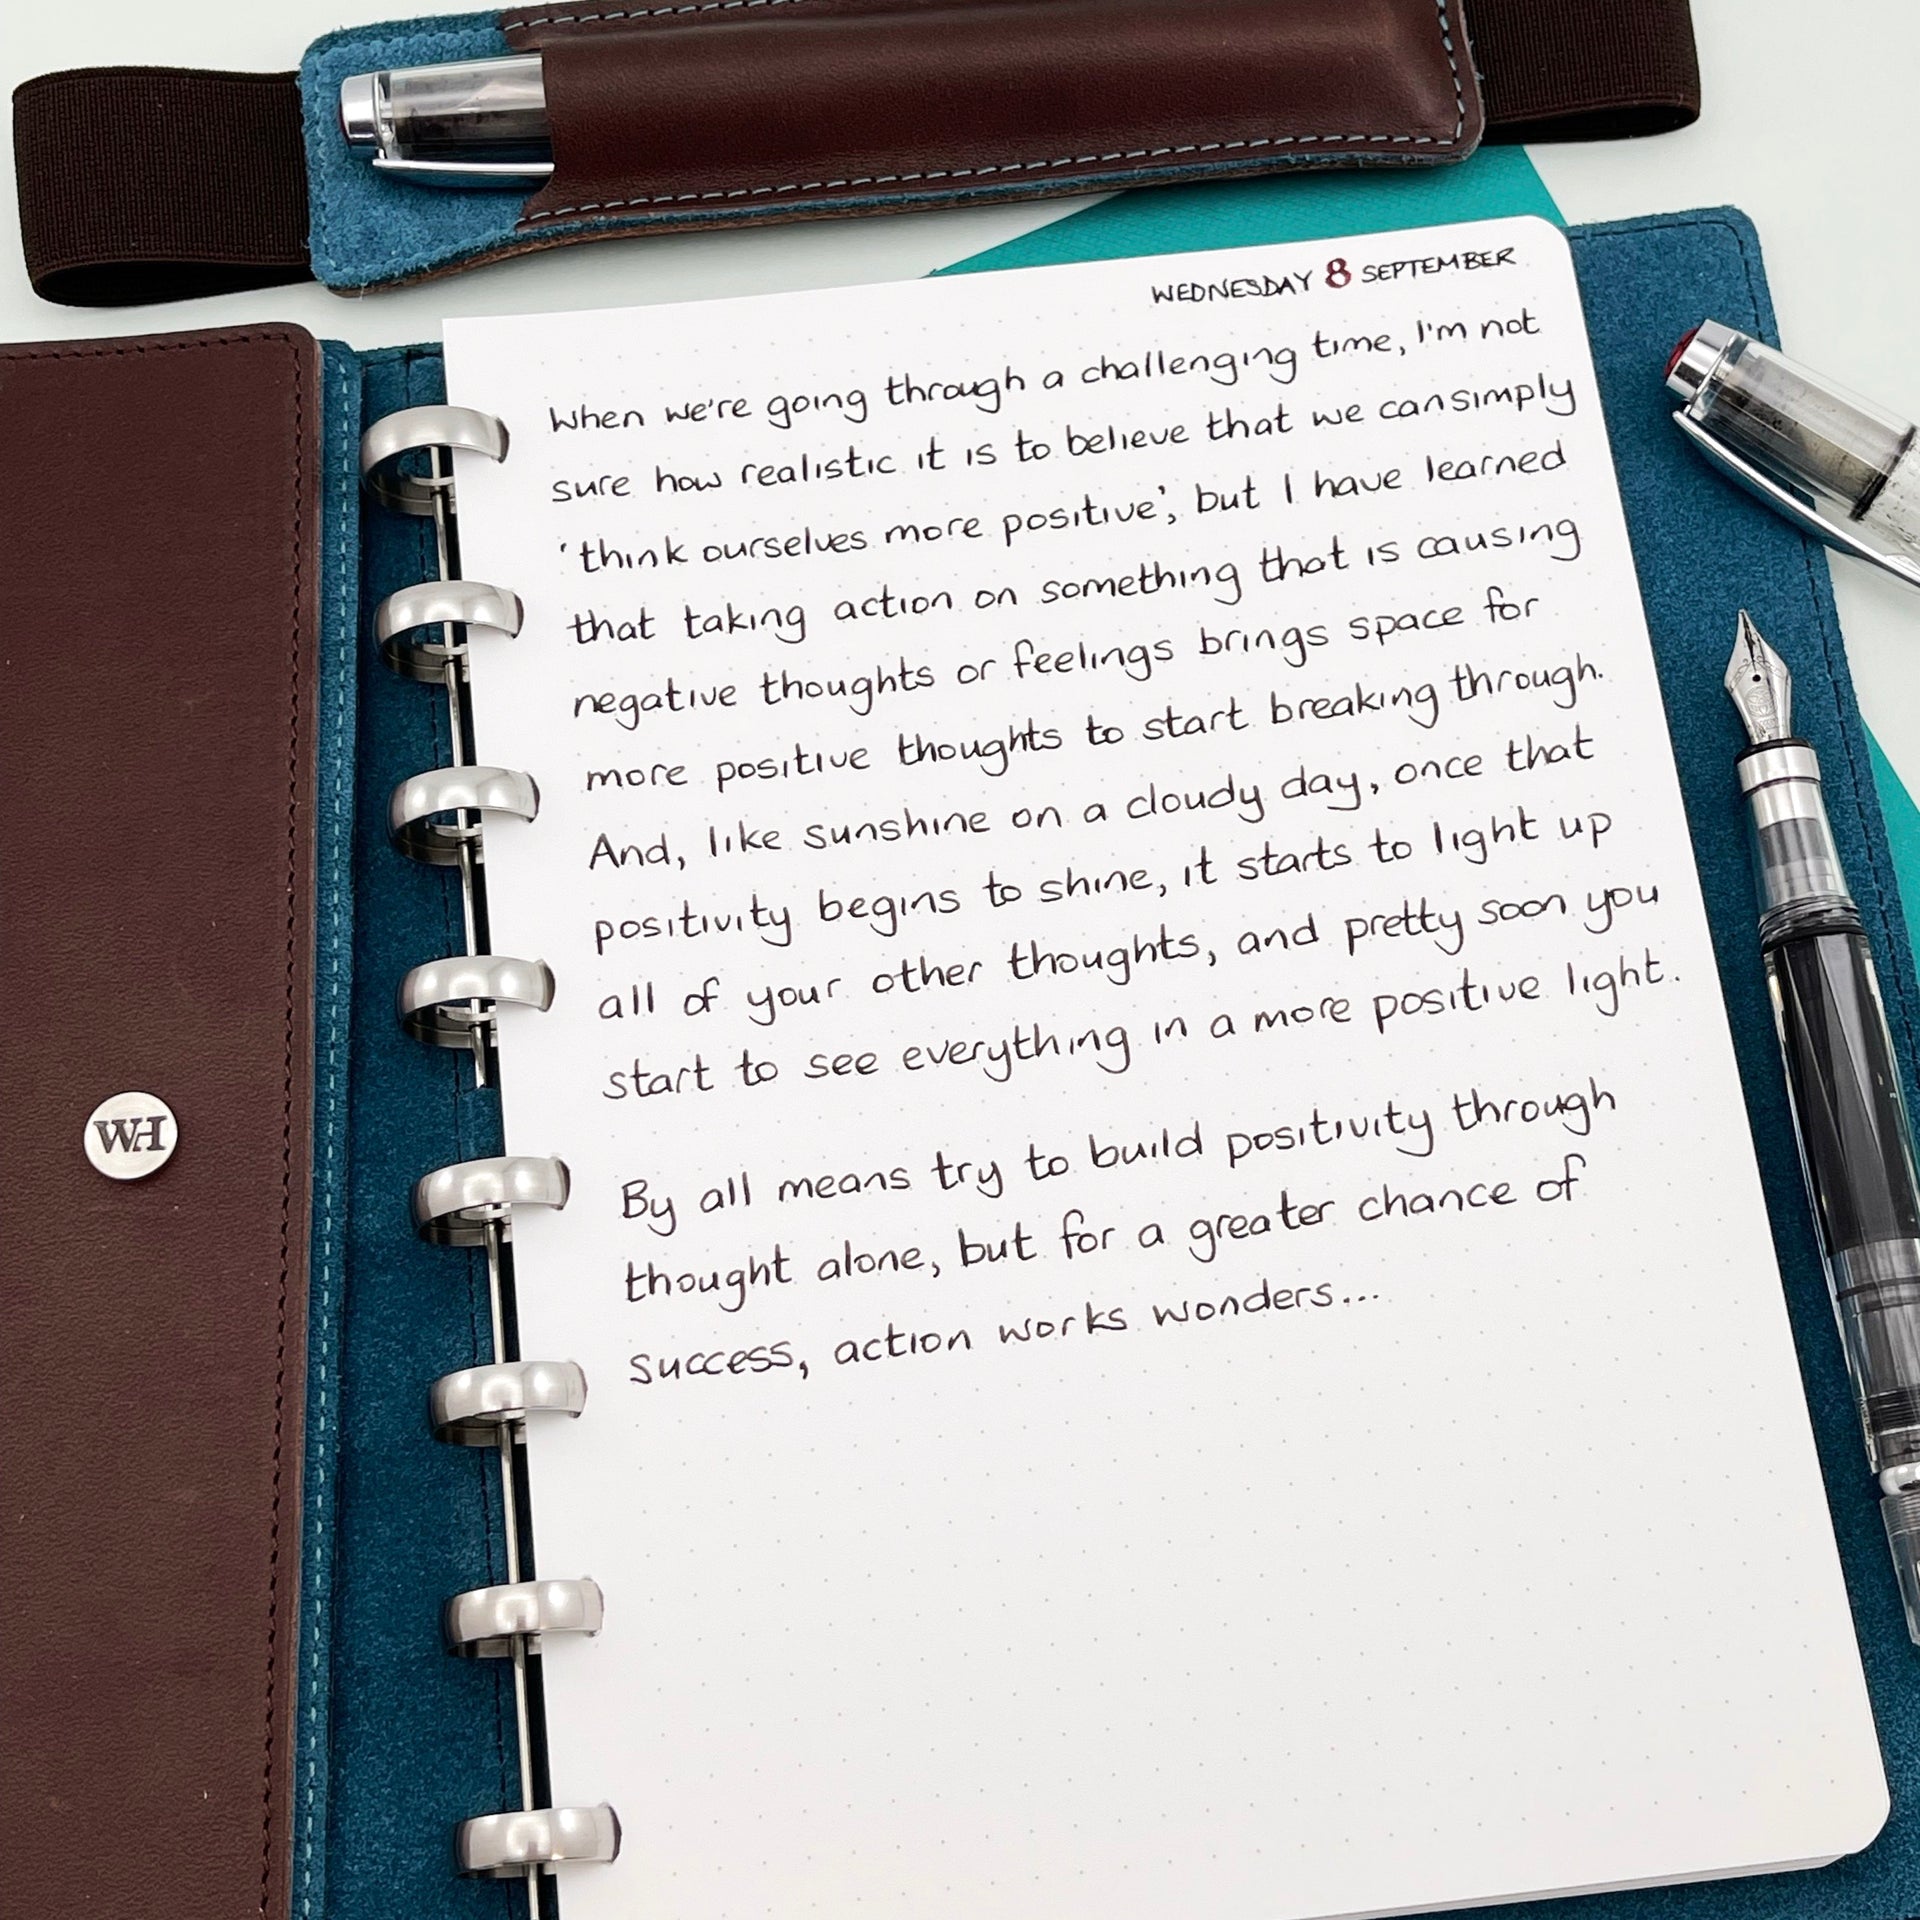 WEDNESDAY 8 SEPTEMBER
When we're going through a challenging time, I'm not
sure how realistic it is to believe that we can simply
'think ourselves more positive', but I have learned
that taking action on something that is causing
negative thoughts or feelings brings space for
more positive thoughts to start breaking through.
And, like sunshine on a cloudy day, once that
positivity begins to shine, it starts to light up
all of your other thoughts, and pretty soon you
start to see everything in a more positive light.
By all means try to build positivity through
thought alone, but for a greater chance of
success, action works wonders...
WH